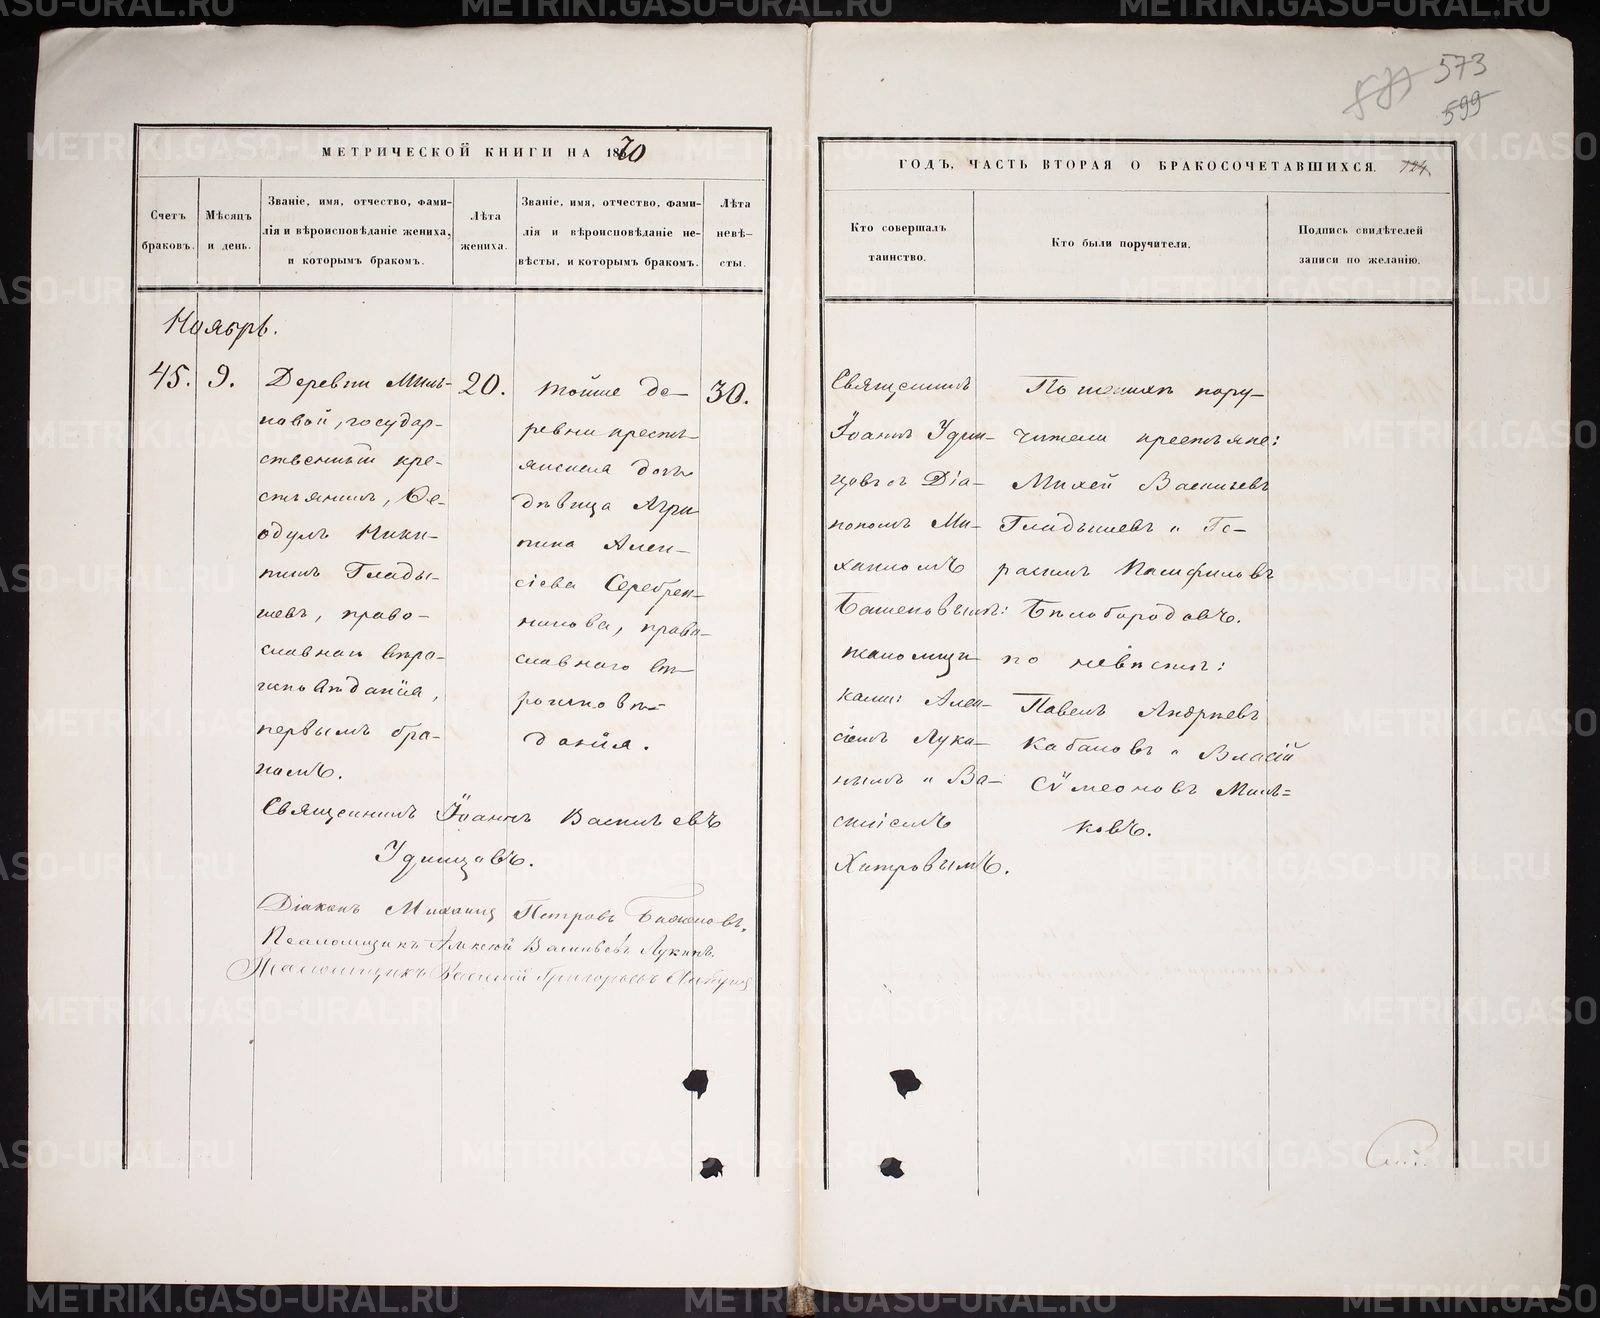 573
599
МЕТРИЧЕСКОЙ КНИГИ НА 1870
Счетъ
браковъ.
Мѣсяцъ
и день.
Званіе, имя, отчество, фами-
лія и вѣроисповѣданіе жениха,
и которымъ бракомъ.
Лѣта
жениха.
Званіе, имя, отчество, фами-
лія и вѣроисповѣданіе не-
вѣсты, и которымъ бракомъ.
Лѣта
невѣ-
сты.
Ноябрь.
45.
9.
Деревни
новой, государ-
ственный кре-
стьянинъ, Ѳе-
одулъ Ники-
тинъ Глады-
шевъ, право-
славнаго вѣро-
исповѣданія,
первымъ бра-
комъ.
20.
тойже де-
ревни кресть-
янина дочь
дѣвица Агри
пина Алек-
сіева Серебрен-
никова, право-
славнаго вѣ-
роисповѣ-
данія.
30.
Священникъ Іоаннъ Васильевъ
Удинцовъ.
Діаконъ Михаилъ Петровъ Баженовъ.
Псаломщикъ Алексѣй Васильевъ Лукинъ.
Псаломщикъ Василій Григорьевъ
ГОДЪ, ЧАСТЬ ВТОРАЯ О БРАКОСОЧЕТАВШИХСЯ.
Кто совершалъ
таинство.
Кто были поручители.
Подпись свидѣтелей
записи по желанію.
Священникъ
Іоаннъ Удин-
цовъ съ Діа-
кономъ Ми-
хаиломъ
Баженовымъ:
псаломщи
ками: Алек-
сіемъ Луки-
нымъ и Ва-
силіемъ
Хитровымъ.
По женихѣ пору-
чители крестьяне:
Михей Васильевъ
Гладышевъ и Ге-
расимъ Памфиловъ
Бѣлобородовъ.
по невѣстѣ:
Павелъ Андреевъ
Кабаковъ и Власій
Сѵмеоновъ Мань=
ковъ.
METRIKI.GASO-URAL.RU